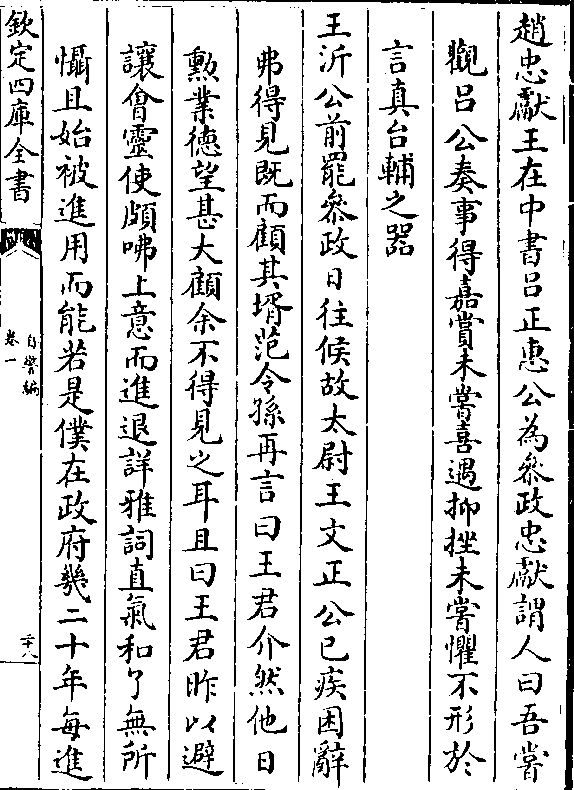 趙忠獻王在中書吕正惠公為叅政忠獻謂人曰吾嘗
觀吕公奏事得嘉賞未嘗喜遇抑挫未嘗懼不形於
言真台輔之器
王沂公前罷叅政日往候故太尉王文正公已疾困辭
弗得見既而顧其壻范令孫再言曰王君介然他日
勲業德望甚大顧余不得見之耳且曰王君昨以避
讓會靈使頗咈上意而進退詳雅詞直氣和了無所
懾且始被進用而能若是僕在政府幾二十年每進
欽定四庫全書
自警編
卷一